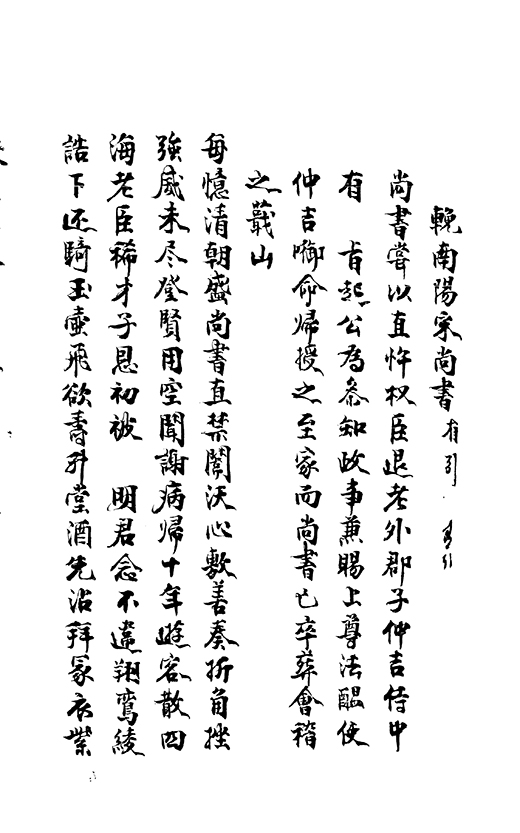 輓南陽宋尚書有引
尚書嘗以直忤权臣退老外郡子仲吉侍中
有 旨起公為条知政事兼賜上尊法醞使
仲吉啣命帰授之至家而尚書已卒葬會稽
之蕺山
每憶清朝盛尚書直禁闈沃心敷善奏折角挫
強威未尽登賢用空聞謝病帰十年遊客散四
海老臣稀才子恩初被 明君念不違翔鸞綾
誥下还騎玉壷飛欲壽升堂酒先沾拜冢衣業